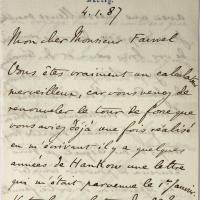 4.1.87
Mon cher Monsieur Fauvel
Vous êtes vraiment un calculateur
merveilleux, car vous venez de
renouveler le tour de force que
vous aviez déjà une fois réalisé
en m'écrivant il y a quelques
années de Hankow une lettre
qui m'était parvenue le 1er Janvier.